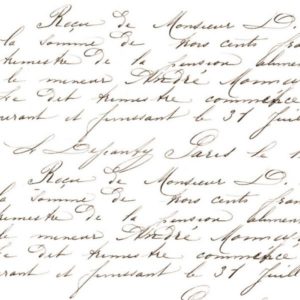 Reçu de Monsieur D.
la somme de trois cents fran
trimestre de la pension alimen
le mineur André
Le dit trimestre commence
ourant et finissant le 31 Juill
Paris le 1
Reçu de Monsieur D.
la somme de trois cents fran
trimestre de la pension alimen
le mineur André
Le dit trimestre commence
ourant et finissant le 31 Juill